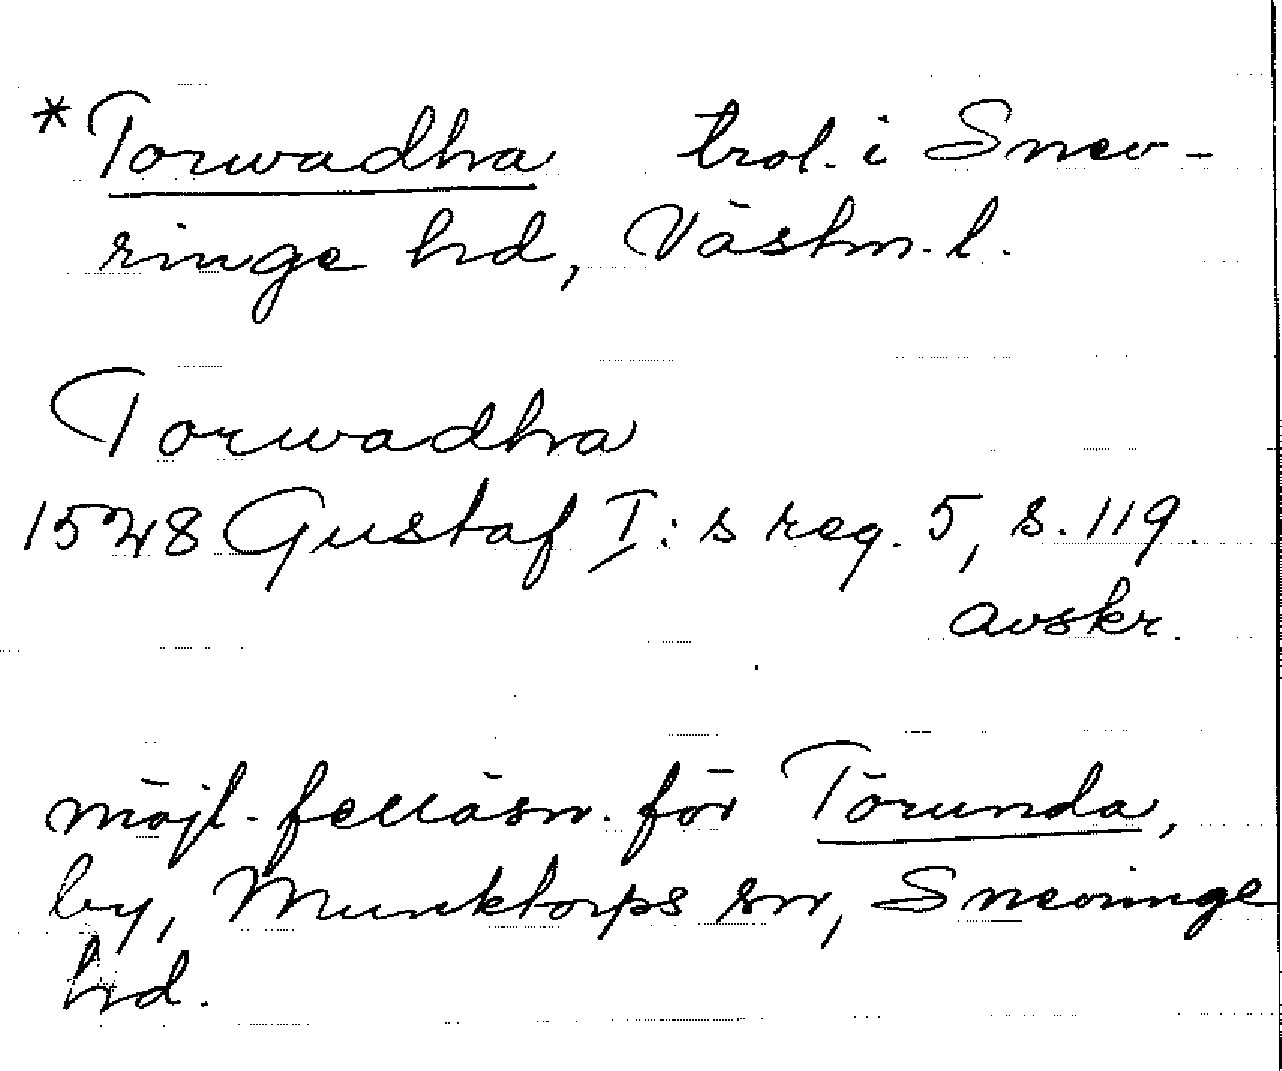 *Torwadha trol. i Snev-
ringe hd, Västm. l.
Torwadha
1528 Gustaf I:s reg. 5, s. 119.
avskr.
möjl. felläsn. för Törunda,
by, Munktorps sn, Snevringe
hd.